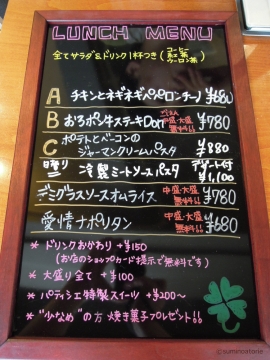 LUNCH MENU
全てサラダ&ドリンク1杯つき(コーヒー
紅茶
ウーロン茶)
A チキンとネギネギペペロンチーノ ¥680
B おろポン牛ステーキDon ごはん中盛・大盛無料!! ¥780
C ポテトとベーコンの
ジャーマンクリームパスタ ¥880
日替り 冷製ミートソースパスタ デザート付 ¥1,100
デミグラスソースオムライス 中盛・大盛無料!! ¥780
愛情ナポリタン 中盛・大盛無料!! ¥680
* ドリンクおかわり +¥150
(お店のショップカード提示で無料です)
* 大盛り全て +¥100
* パティシエ特製スイーツ +¥200~
* "少なめ"の方 焼き菓子プレゼント!!